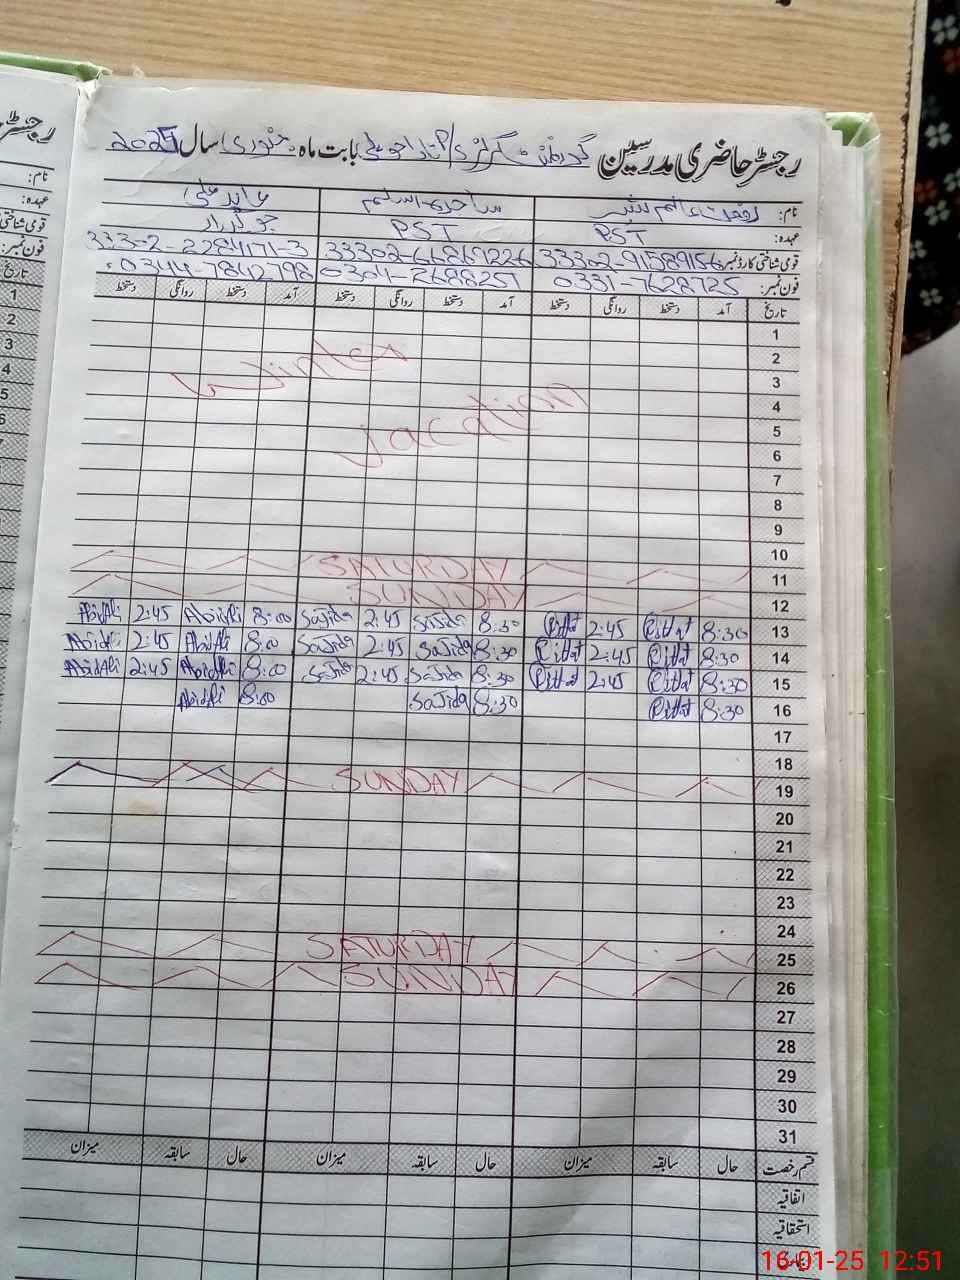 رجسٹر حاضری مدرسین گورنمنٹ گرلز بابت ماہ جنوری سال 2025
نام: ساجدہ اسلم عابد علی
عہدہ: PST PST چوکیدار
قومی شناختی کارڈ نمبر: 33302-9158915-6 33302-6686922-6 333-0-2-2284171-3
فون نمبر: 0331-7628725 0304-2688251 0344-7842798
تاریخ آمد دستخط روانگی دستخط آمد دستخط روانگی دستخط آمد دستخط روانگی دستخط
1
2 Winter
3
4 Vacation
5
6
7
8
9
10
11 SATURDAY
12 SUNDAY
13 8:30 Riffat 2:45 Riffat 8:30 Sajida 2:45 Sajida 8:00 Abid Ali 2:45 Abid Ali
14 8:30 Riffat 2:45 Riffat 8:30 Sajida 2:45 Sajida 8:00 Abid Ali 2:45 Abid Ali
15 8:30 Riffat 2:45 Riffat 8:30 Sajida 2:45 Sajida 8:00 Abid Ali 2:45 Abid Ali
16 8:30 Riffat 8:30 Sajida 8:00 Abid Ali
17
18
19 SUNDAY
20
21
22
23
24
25 SATURDAY
26 SUNDAY
27
28
29
30
31
قسم رخصت حال سابقہ میزان حال سابقہ میزان حال سابقہ میزان
اتفاقیہ
استحقاقیہ
رجسٹر
نام:
عہدہ:
قومی شناختی
فون نمبر:
تاریخ
1
2
3
4
5
16-01-25 12:51